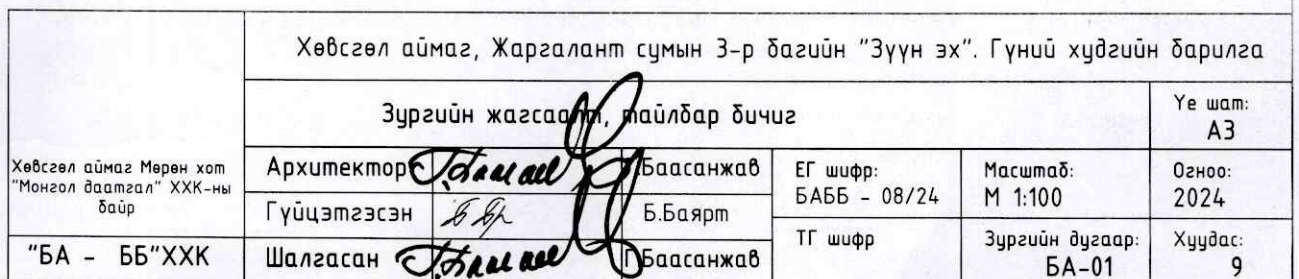 Хөвсгөл аймаг, Жаргалант сумын 3-р багийн "Зүүн эх". Гүний худгийн барилга
Зургийн жагсаалт, тайлбар бичиг
Үе шат:
А3
Хөвсгөл аймаг Мөрөн хот
"Монгол даатгал" ХХК-ны
байр
Архитектор Г.Баасанжав
Гүйцэтгэсэн Б.Баярт
"БА - ББ"ХХК
Шалгасан Г.Баасанжав
ЕГ шифр:
БАББ - 08/24
Масштаб:
М 1:100
Огноо:
2024
ТГ шифр
Зургийн дугаар:
БА-01
Хуудас:
9